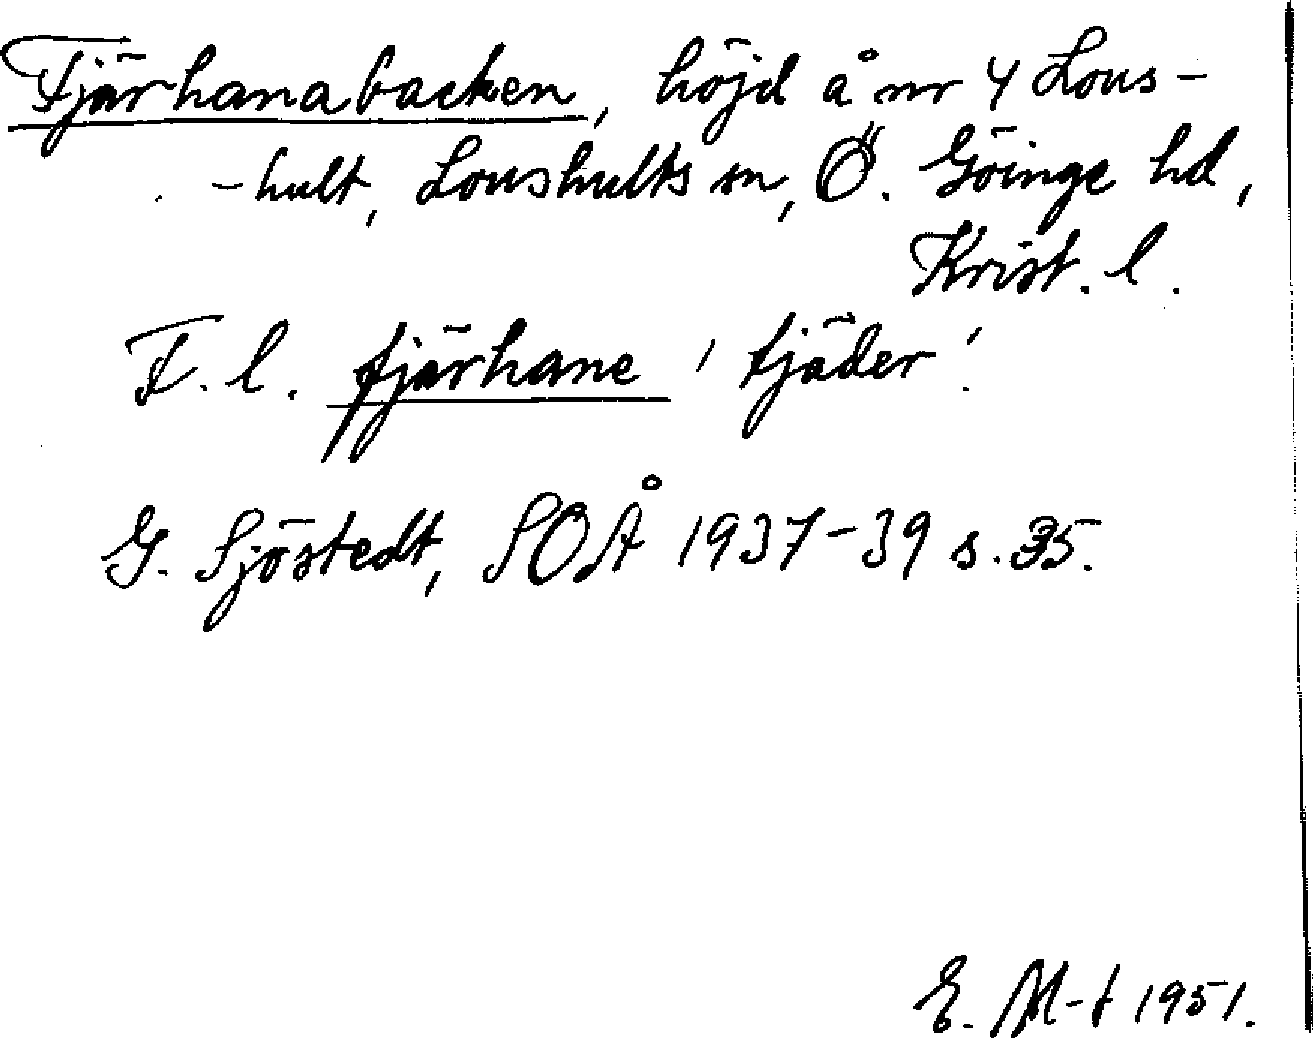 Fjärhanabacken, höjd å nr 4 Lous-
-hult, Loushults sn, Ö. Göinge hd,
Krist. l.
F. l. fjärhane 'tjäder'.
G. Sjöstedt, SOÅ 1937-39 s. 35.
E. M-t 1951.